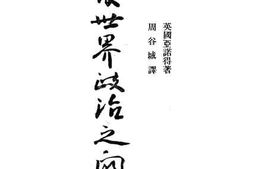 英國亞諾得著
周谷城譯
世界政治之